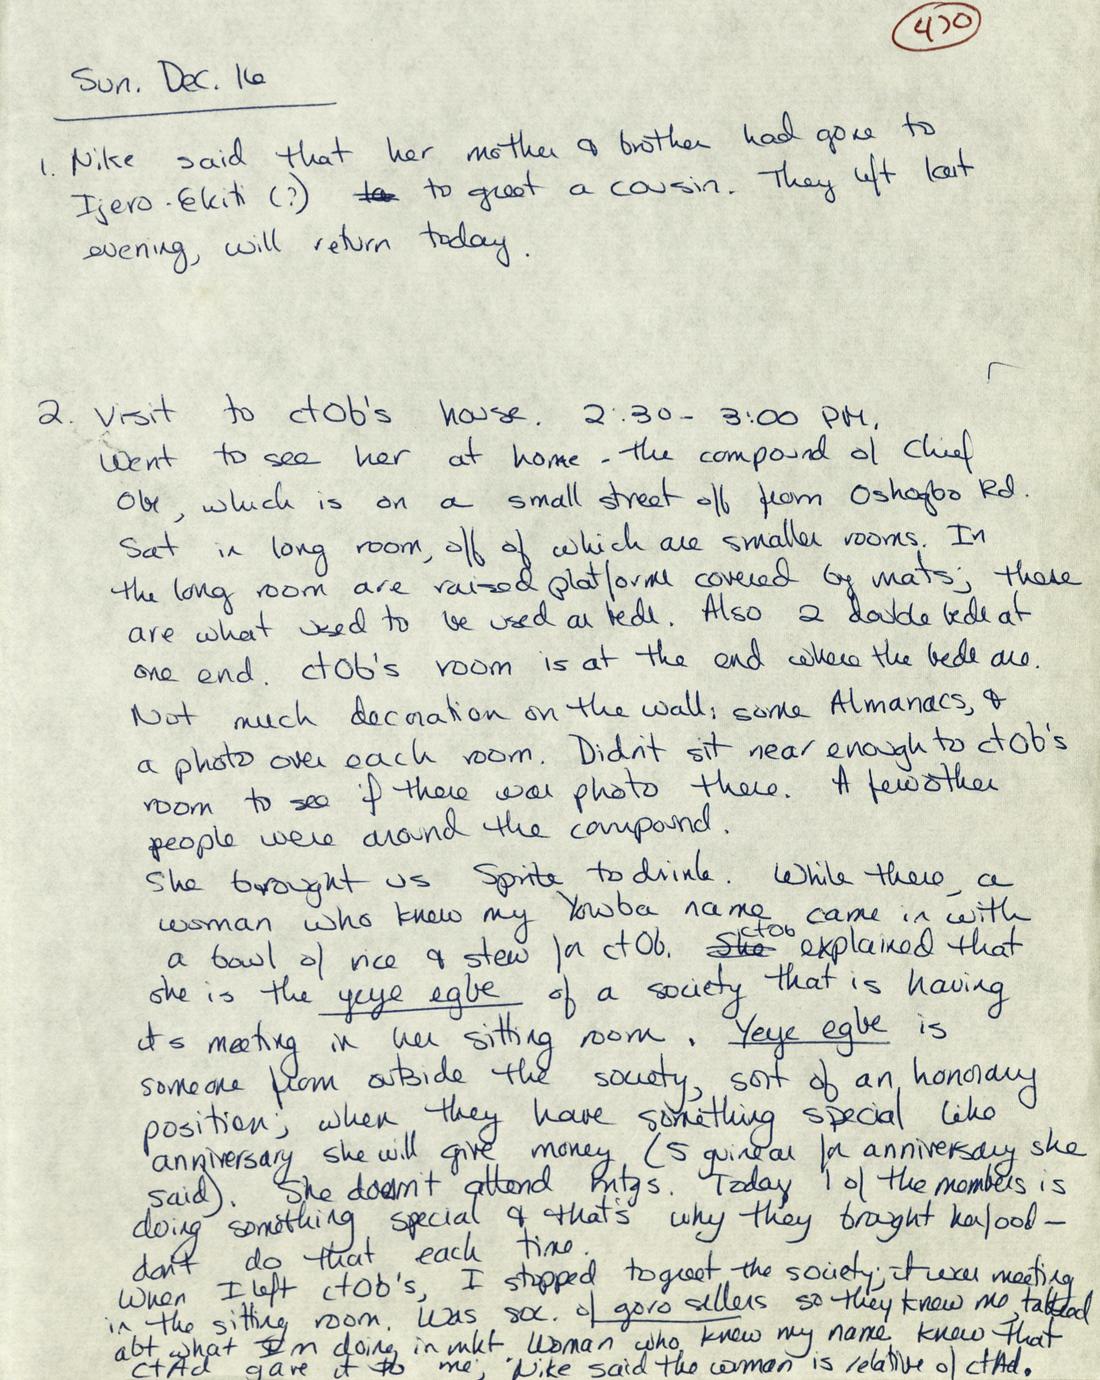 470
Sun. Dec. 16
1. Nike said that her mother & brother had gone to
Ijero-Ekiti (?) to to greet a cousin. They left last
evening, will return today.
2. Visit to ctOb's house. 2:30 - 3:00 PM.
Went to see her at home - the compound of Chief
Obi, which is on a small street off from Oshogbo Rd.
Sat in long room, off of which are smaller rooms. In
the long room are raised platforms covered by mats; these
are what used to be used as beds. Also 2 double beds at
one end. ctOb's room is at the end where the beds are.
Not much decoration on the wall; some Almanacs, &
a photo over each room. Didn't sit near enough to ctOb's
room to see if there was photo there. A few other
people were around the compound.
She brought us Sprite to drink. While there, a
woman who knew my Yoruba name came in with
a bowl of rice & stew for ctOb. She ctOb explained that
she is the yeye egbe of a society that is having
its meeting in her sitting room. Yeye egbe is
someone from outside the society, sort of an honorary
position; when they have something special like
anniversary she will give money (5 guineas for anniversary she
said). She doesn't attend mtgs. Today 1 of the members is
doing something special & that's why they brought her food -
don't do that each time.
When I left ctOb's, I stopped to greet the society; it was meeting
in the sitting room. Was soc. of goro sellers so they knew me, talked
abt what I'm doing in mkt. Woman who knew my name knew that
ctAd gave it to me; Nike said the woman is relative of ctAd.